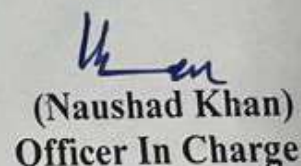 (Naushad Khan)
Officer In Charge